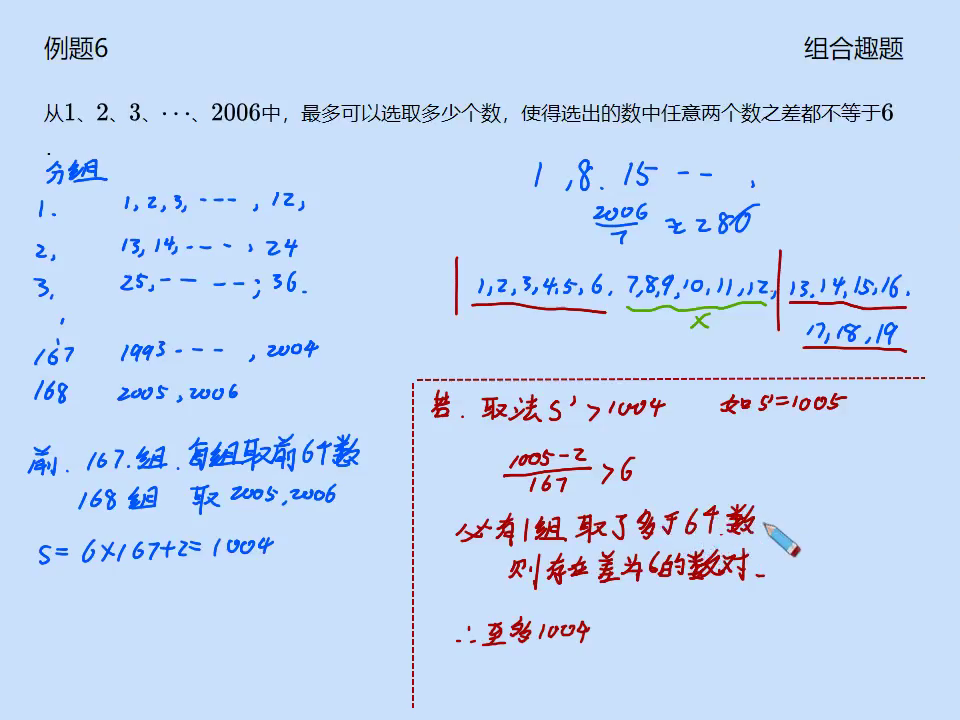 例题6
组合趣题
从1、2、3、⋯、2006中，最多可以选取多少个数，使得选出的数中任意两个数之差都不等于6
.
分组
1. 1,2,3,---,12,
2, 13,14,---,24
3, 25,-- --;36.
167 1993---,2004
168 2005,2006
前.167.组.每组取前6个数
168组 取2005,2006
S=6×167+2=1004
1,8.15 --,
2006/7≈280
1,2,3,4,5,6. 7,8,9,10,11,12, 13.14,15,16.
×
17,18,19
若.取法S'>1004 如S'=1005
(1005-2)/167>6
必有1组取了多于6个数
则存在差为6的数对.
∴至多1004